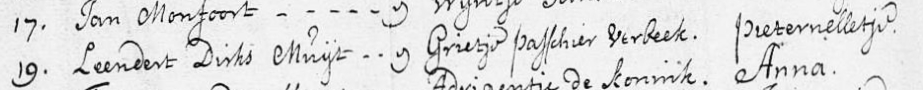 17. Jan Monfoort - - - - - y
19. Leendert Dirks Muijt - - y Grietje Passchier Verbeek. Pieternelletje.
de Konink. Anna.